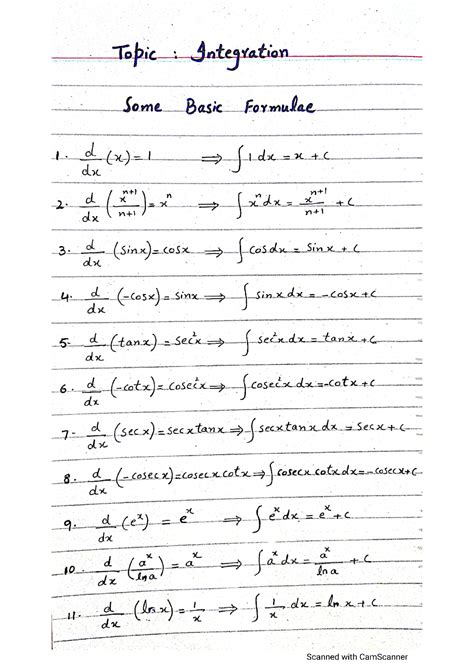 Topic : Integration
Some Basic Formulae
1. d/dx (x) = 1 ⟹ ∫1 dx = x + c
2. d/dx (x^(n+1)/(n+1)) = x^n ⟹ ∫x^n dx = x^(n+1)/(n+1) + c
3. d/dx (sinx) = cosx ⟹ ∫cosdx = sinx + c
4. d/dx (-cosx) = sinx ⟹ ∫sinx dx = -cosx + c
5. d/dx (tanx) = sec²x ⟹ ∫sec²x dx = tanx + c
6. d/dx (-cotx) = cosec²x ⟹ ∫cosec²x dx = -cotx + c
7. d/dx (secx) = secxtanx ⟹ ∫secxtanx dx = secx + c
8. d/dx (-cosecx) = cosecx cotx ⟹ ∫cosecx cotx dx = -cosecx + c
9. d/dx (e^x) = e^x ⟹ ∫e^x dx = e^x + c
10. d/dx (a^x/lna) = a^x ⟹ ∫a^x dx = a^x/lna + c
11. d/dx (lnx) = 1/x ⟹ ∫1/x dx = lnx + c
Scanned with CamScanner